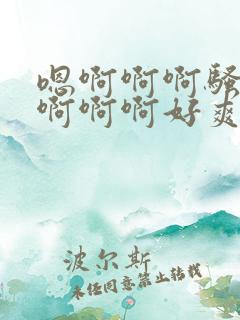 嗯啊啊啊骚
啊啊啊好爽
波尔斯
未经同意禁止转载